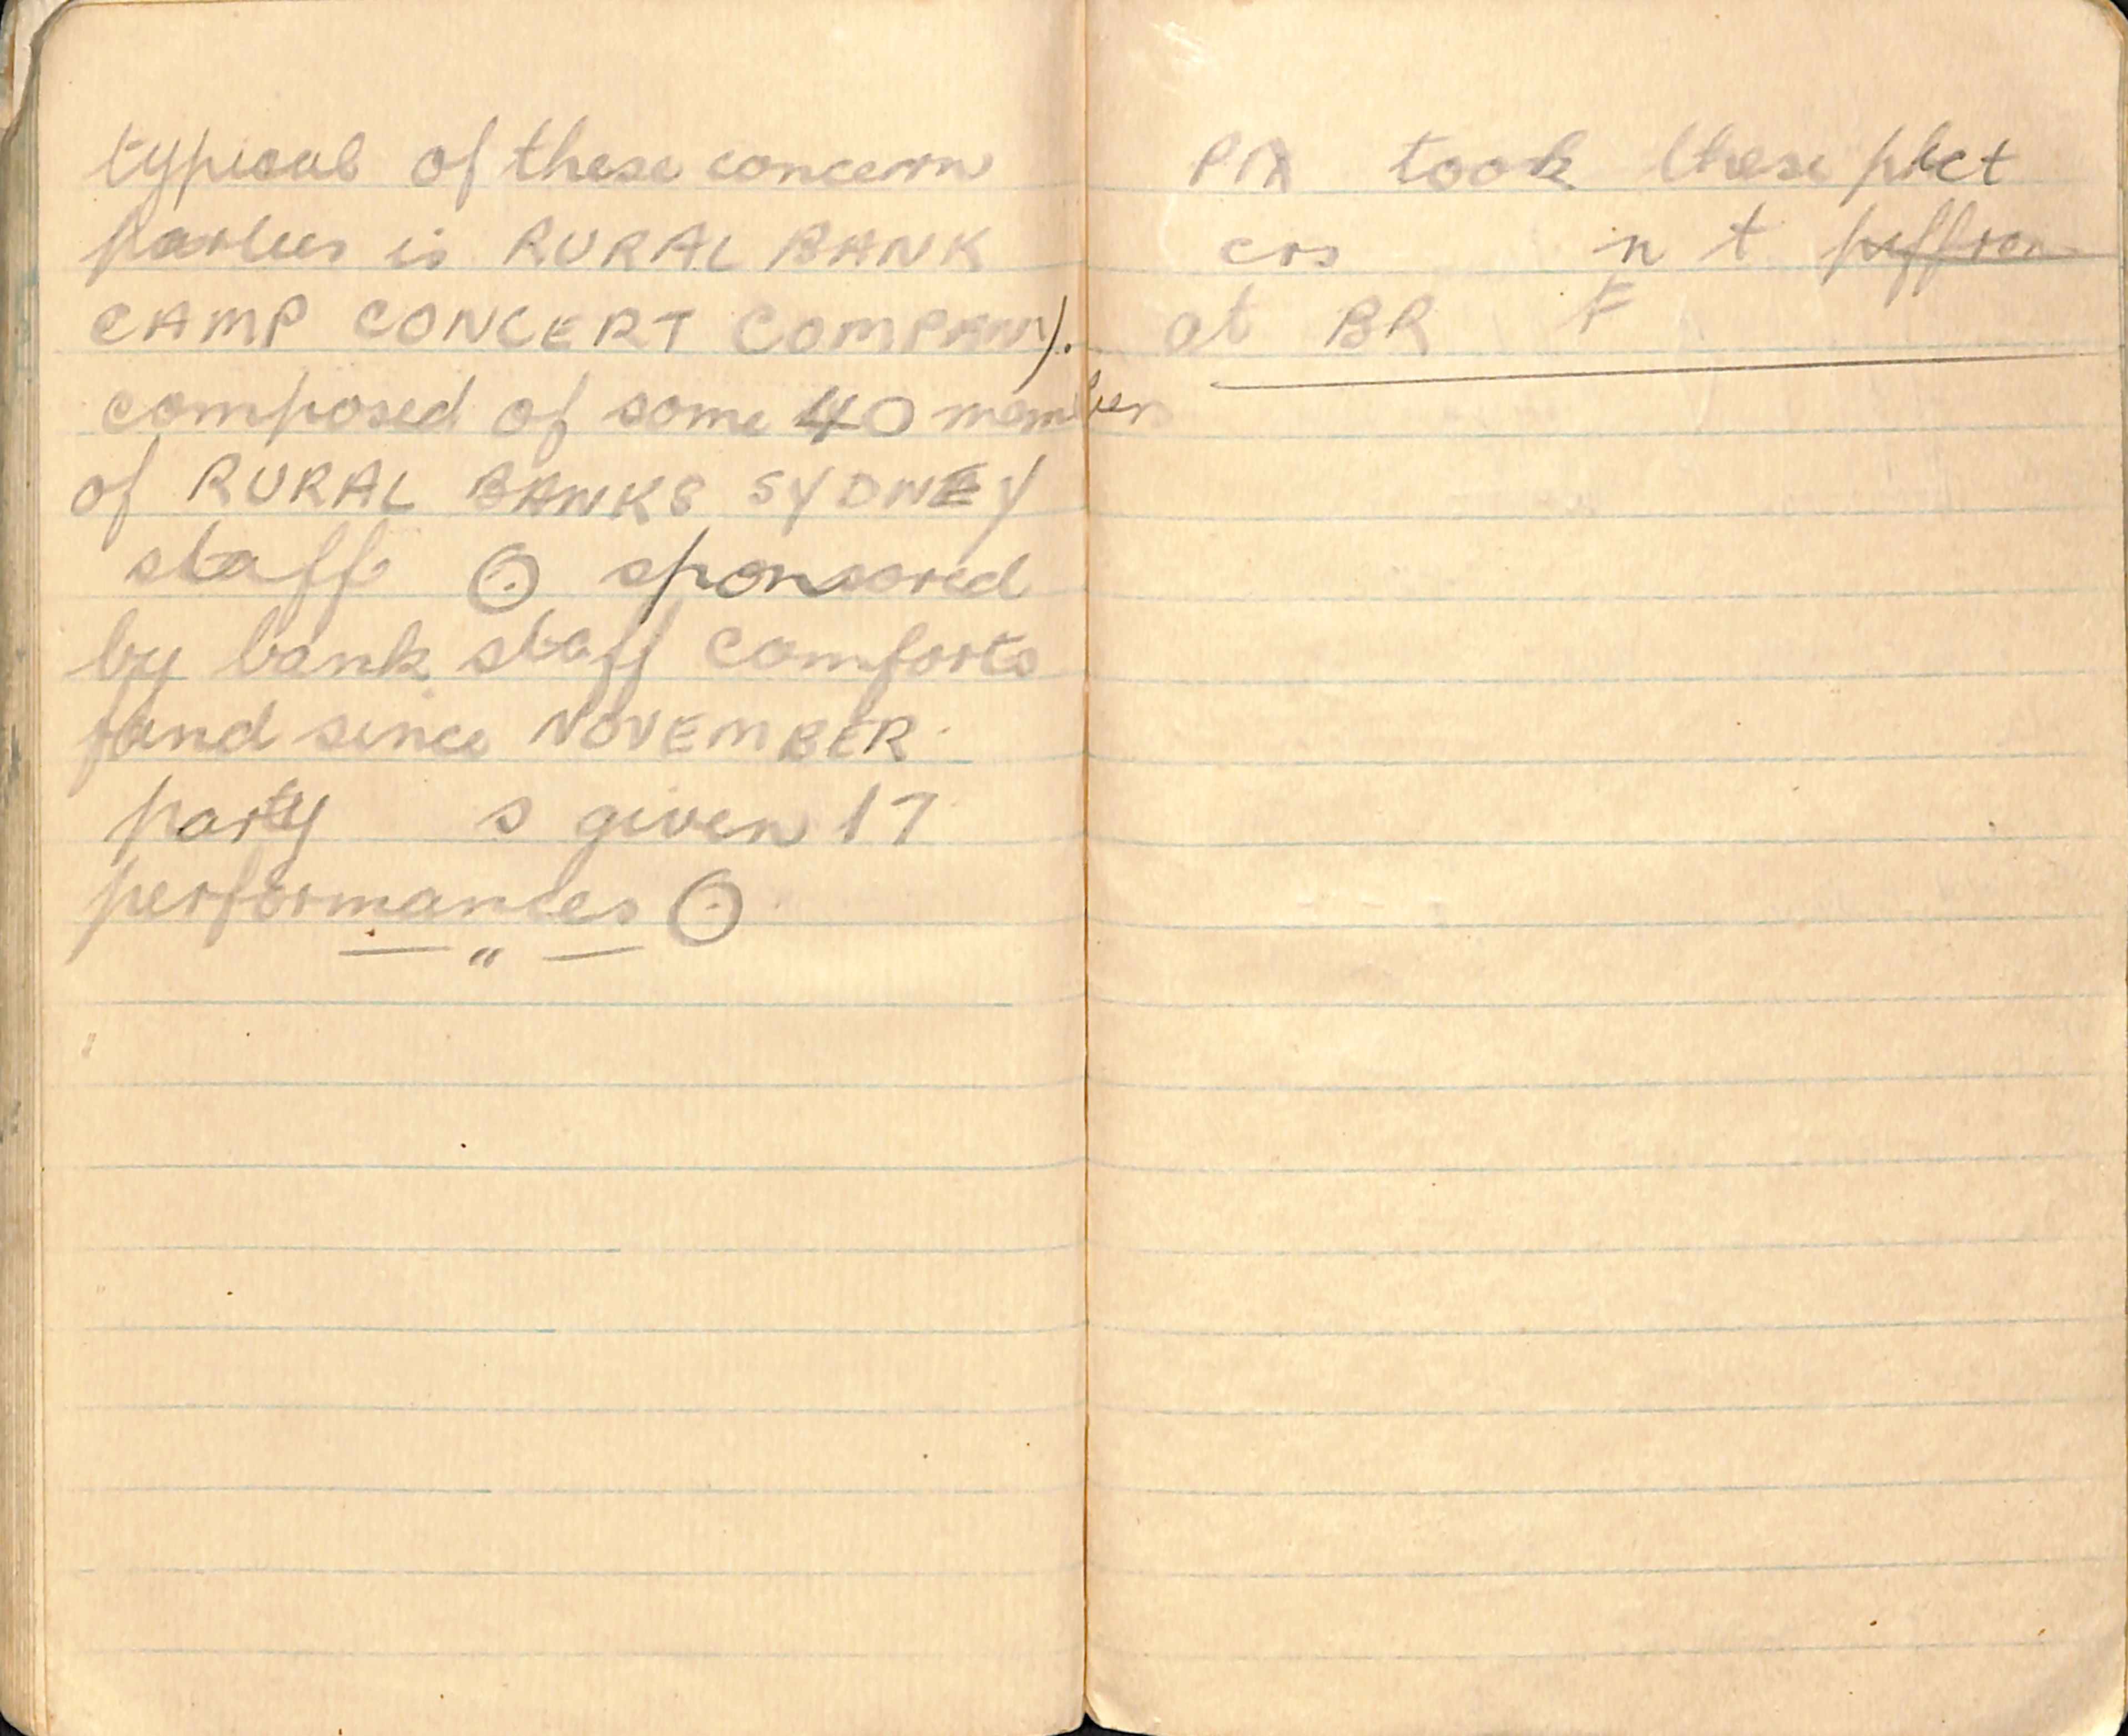 typical of these concern
parties is RURAL BANK
CAMP CONCERT COMPANY.
composed of some 40 members
of RURAL BANKS SYDNEY
staff ⊙ sponsored
by bank staff comforts
fund since NOVEMBER
party s given 17
performances ⊙
— " —
took these pict
ers n t
at BR F